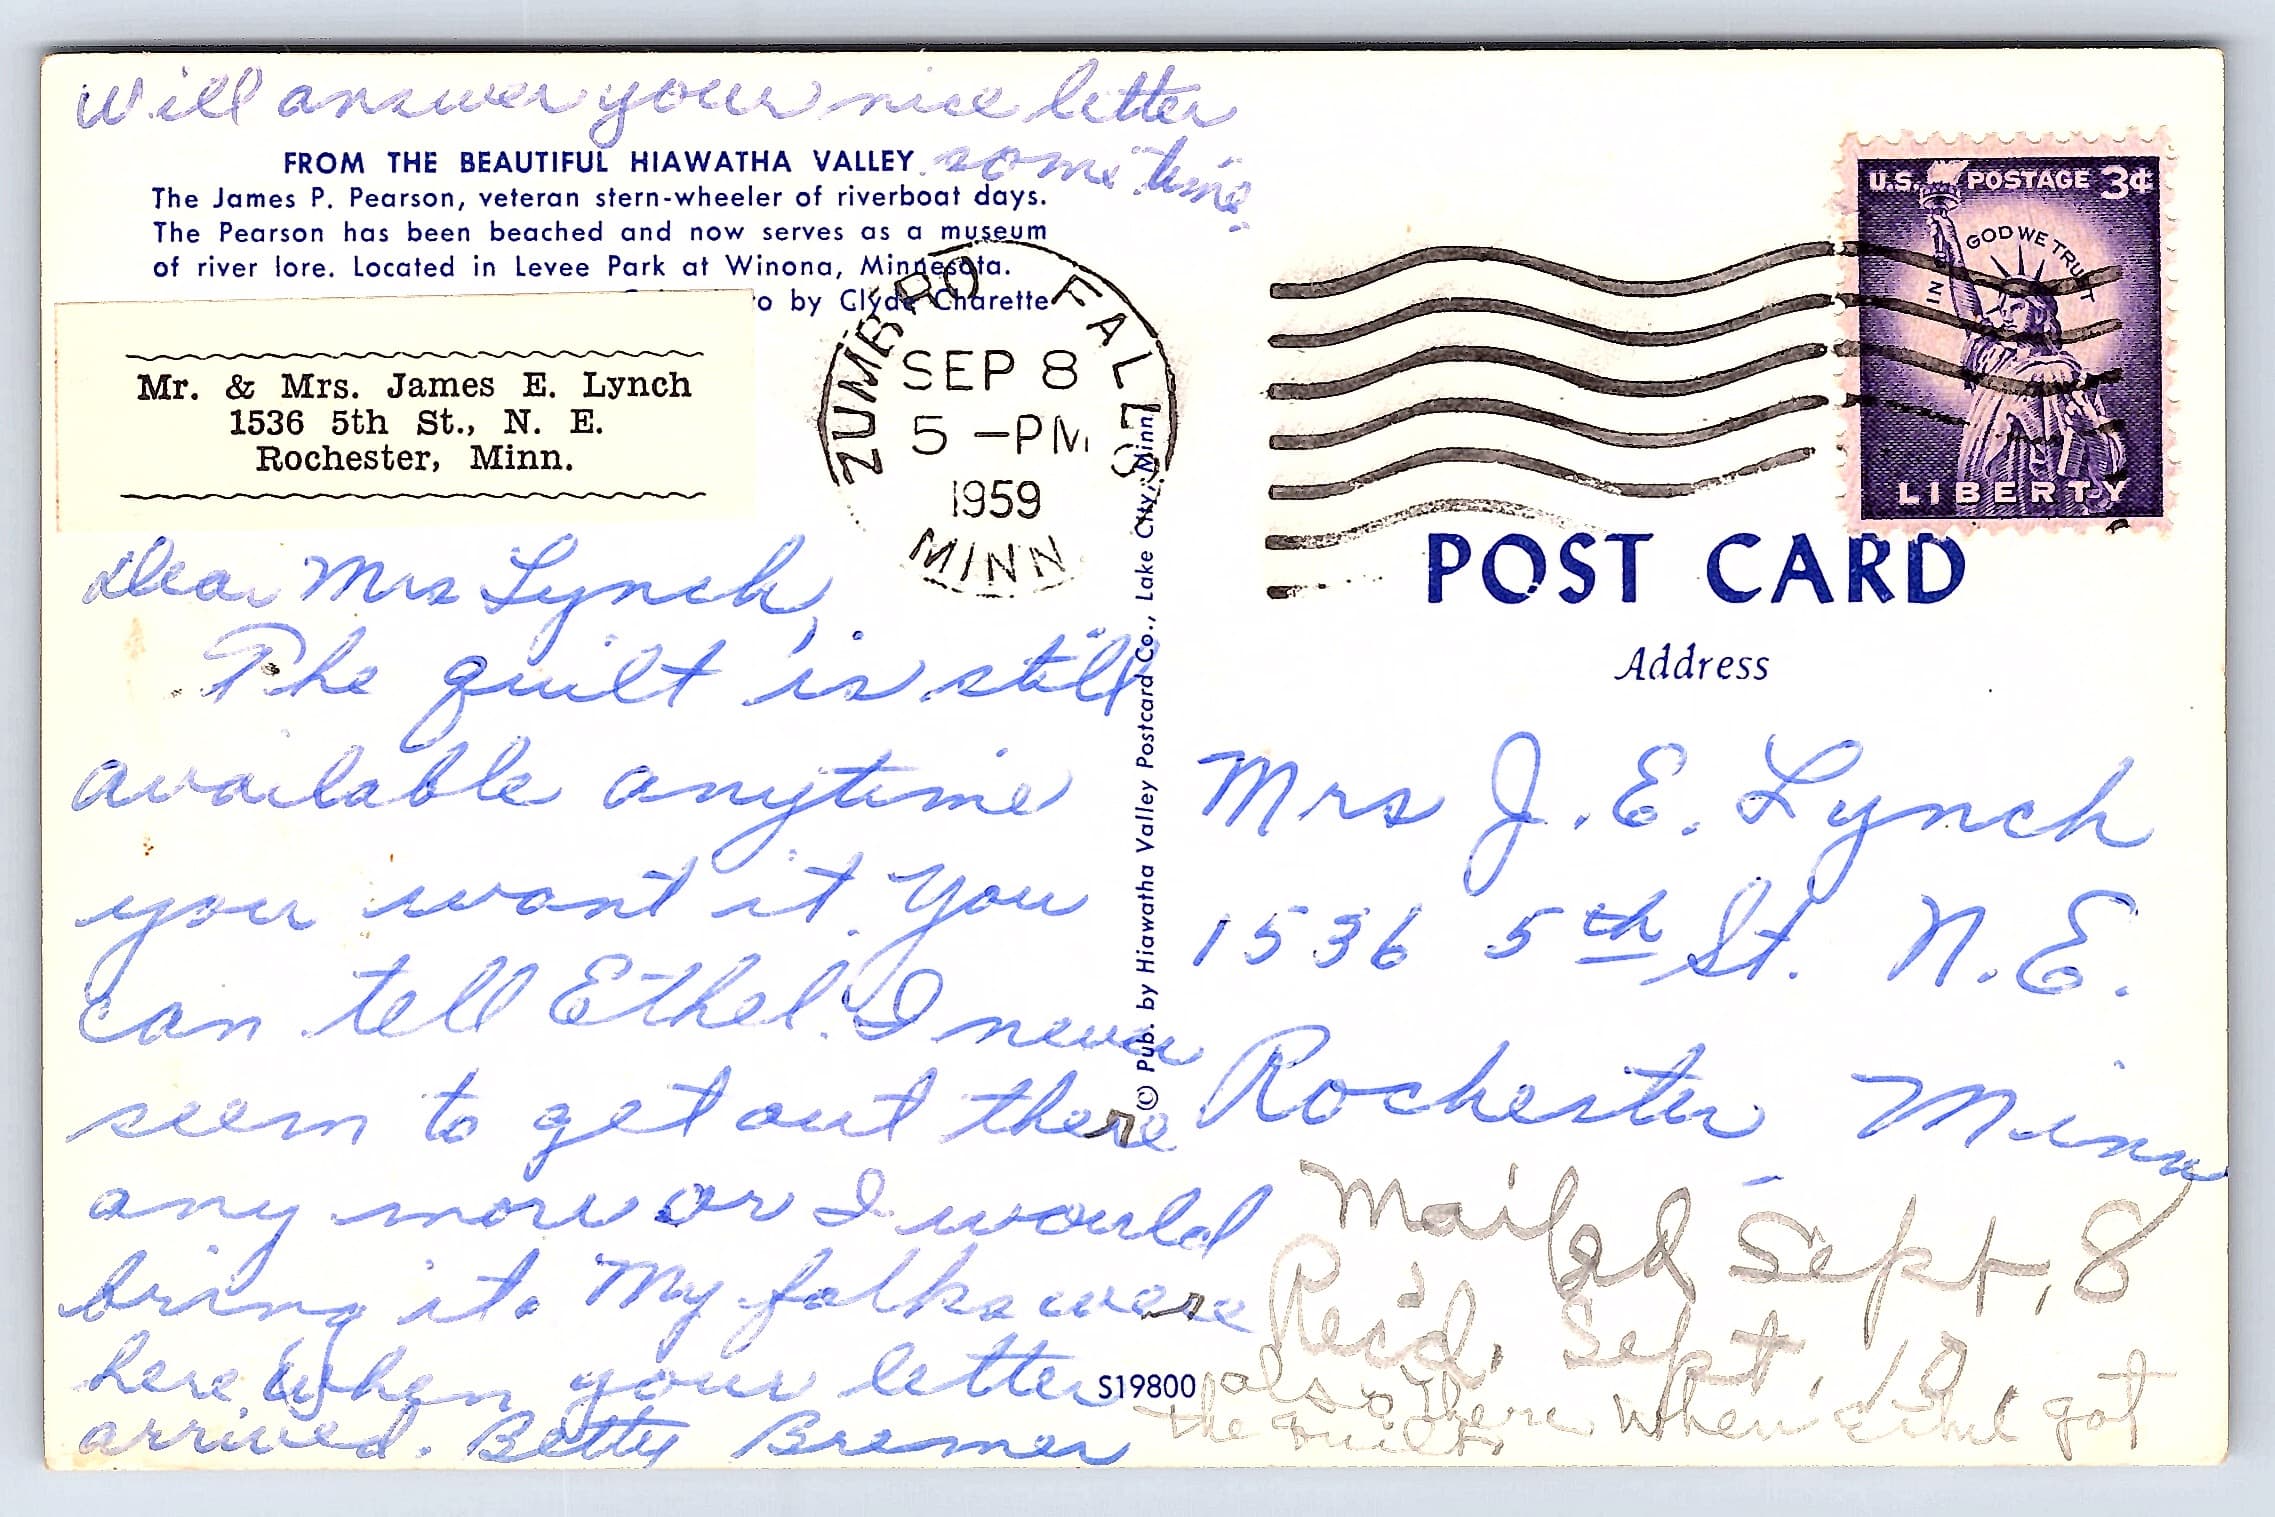 Will answer your nice letter
some time.
FROM THE BEAUTIFUL HIAWATHA VALLEY
The James P. Pearson, veteran stern-wheeler of riverboat days.
The Pearson has been beached and now serves as a museum
of river lore. Located in Levee Park at Winona, Minnesota.
by Clyde Charette
Mr. & Mrs. James E. Lynch
1536 5th St., N. E.
Rochester, Minn.
ZUMBRO FALLS
SEP 8
5 -PM
1959
MINN
U.S. POSTAGE 3¢
IN GOD WE TRUST
LIBERTY
Dear Mrs Lynch,
The quilt is still
available anytime
you want it. You
can tell Ethel. I never
seem to get out there
any more or I would
bring it. My folks were
here when your letter
arrived. Betty Bremer
© Pub. by Hiawatha Valley Postcard Co., Lake City, Minn.
S19800
POST CARD
Address
Mrs J. E. Lynch
1536 5th St. N. E.
Rochester, Minn
Mailed Sept, 8
Re'cd. Sept. 10
also there when Ethel got
the quilt